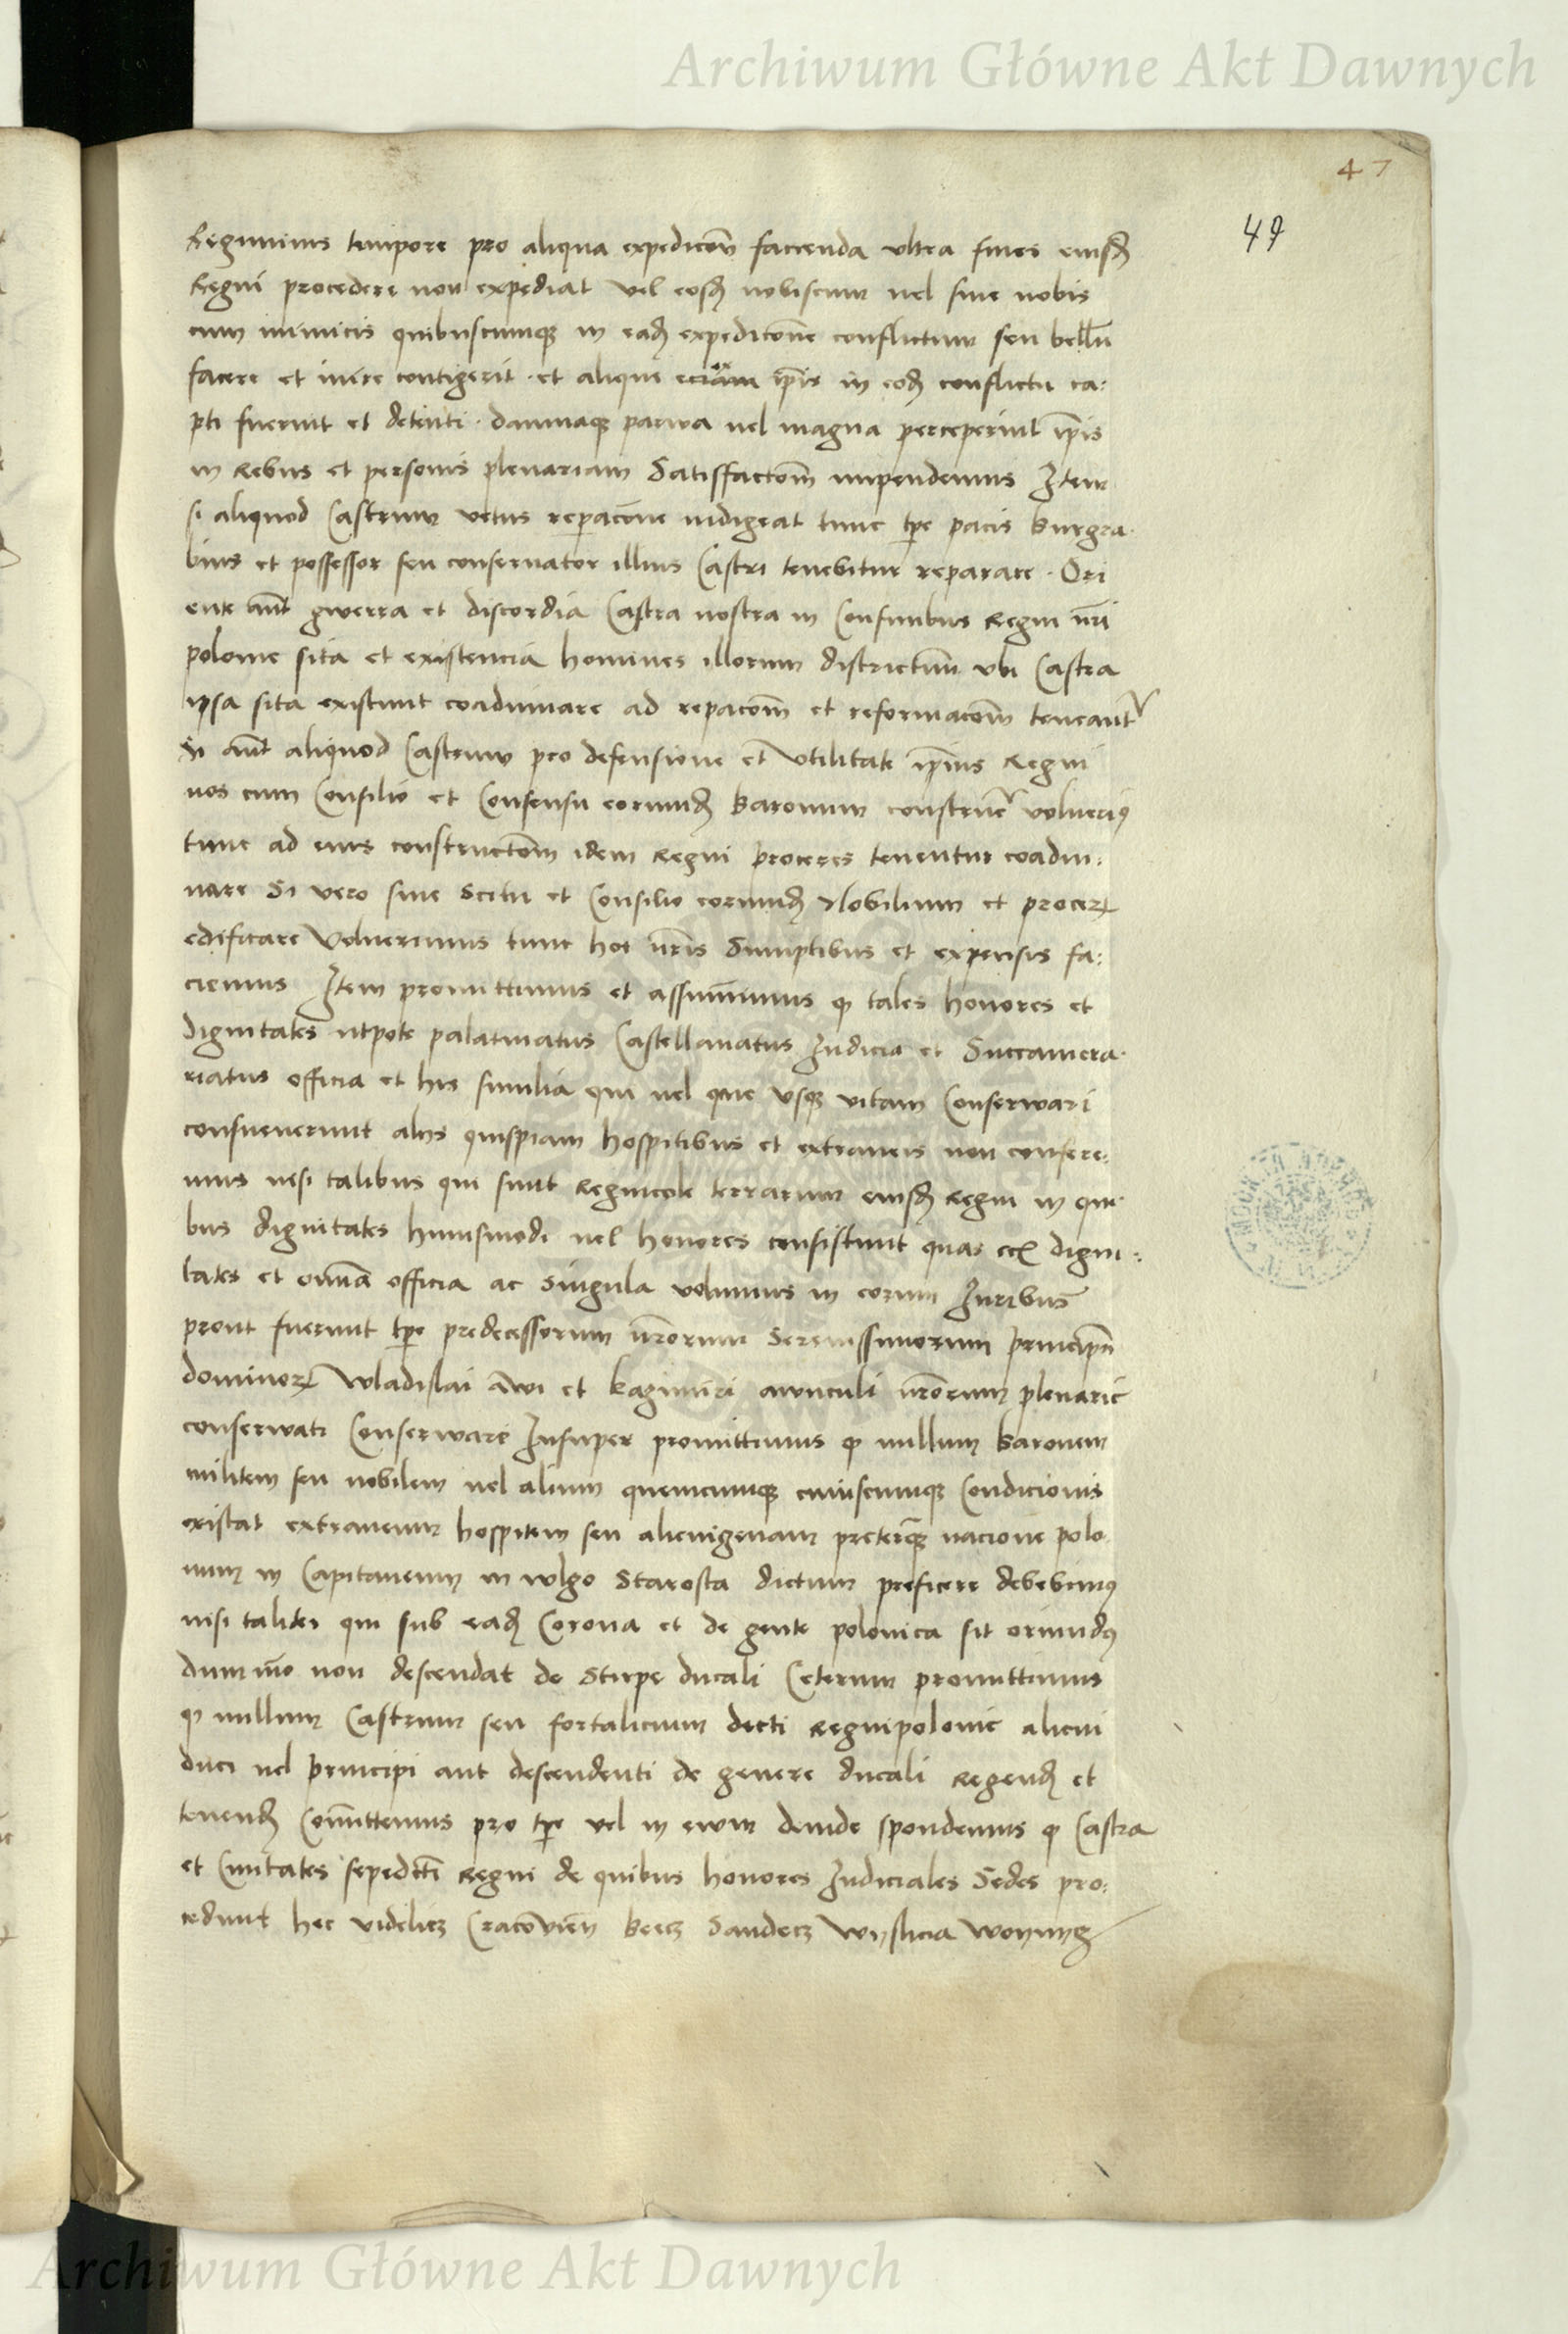 Archiwum Główne Akt Dawnych
47
49
Regiminis tempore pro aliqua expedicoñ facienda vltra fines eiusd
Regni procedere non expediat vel eosd nobiscum uel sine nobis
cum inimicis quibuscumque in ead expedicone conflictum seu bellu
facere et inire contigerit · et aliqui ex ipis in eod conflictu ca:
pti fuerint et detenti · damnaque parwa uel magna perceperint ipis
in Rebus et personis plenariam Satisffactom impendemus Item
si aliquod Castrum vetus reparacione indigeat tunc tpe pacis burgra-
bius et possessor seu conseruator illius Castri tenebitur reparare · Ori
ente aut gwerra et discordia Castra nostra in Confinibus Regni nri
polonie sita et existencia homines illorum districtuum vbi Castra
ipsa sita existunt coadiuuare ad repacom et reformacom teneant
Si aut aliquod Castrum pro defensione et Vtilitate ipius Regni
nos cum Consilio et Consensu eorumd baronum construe voluerius
tunc ad eius constructom idem Regni proceres tenentur coadiu:
uare Si vero sine Scitu et Consilio eorumd Nobilium et procer
edificare Voluerimus tunc hoc nris Sumptibus et expensis fa:
ciemus Item promittimus et assummimus q tales honores et
dignitates utpote palatinatus Castellanatus Judicia et Succamera-
riatus officia et his similia qui uel que vsque vitam Conserwari
consueuerunt alijs quispiam hospitibus et extraneis non confere:
mus nisi talibus qui sunt Regnicole terrarum eiusd Regni in qui-
bus dignitates huiusmodi uel honores consistunt quas digni:
tates et omnia officia ac singula volumus in eorum Juribus
prout fuerunt tpe predecessorum nrorum Serenissimorum principu
dominor Wladislai awi et kazimiri awnculi nrorum plenarie
conserwati Conserware Insuper promittimus q nullum baronem
militem seu nobilem uel alium quemcumque cuiuscumque Condicionis
existat extraneum hospitem seu alienigenam preterque nacione polo
num in Capitaneum in wlgo Starosta dictum preficere debebimus
nisi taliter qui sub ead Corona et de gente polonica sit oriundus
dummo non descendat de Stirpe ducali Ceterum promittimus
q nullum Castrum seu fortalicium dicti Regni polonie alicui
duci uel principi aut descendenti de genere ducali Regend et
tenend Comittemus pro tpe vel in ewm deinde spondemus q Castra
et Ciuitates sepedcti Regni de quibus honores Judiciales Sedes pro:
cedunt hec videlicz Cracovien biecz Sandecz Wyslicia Woynycz
Archiwum Główne Akt Dawnych